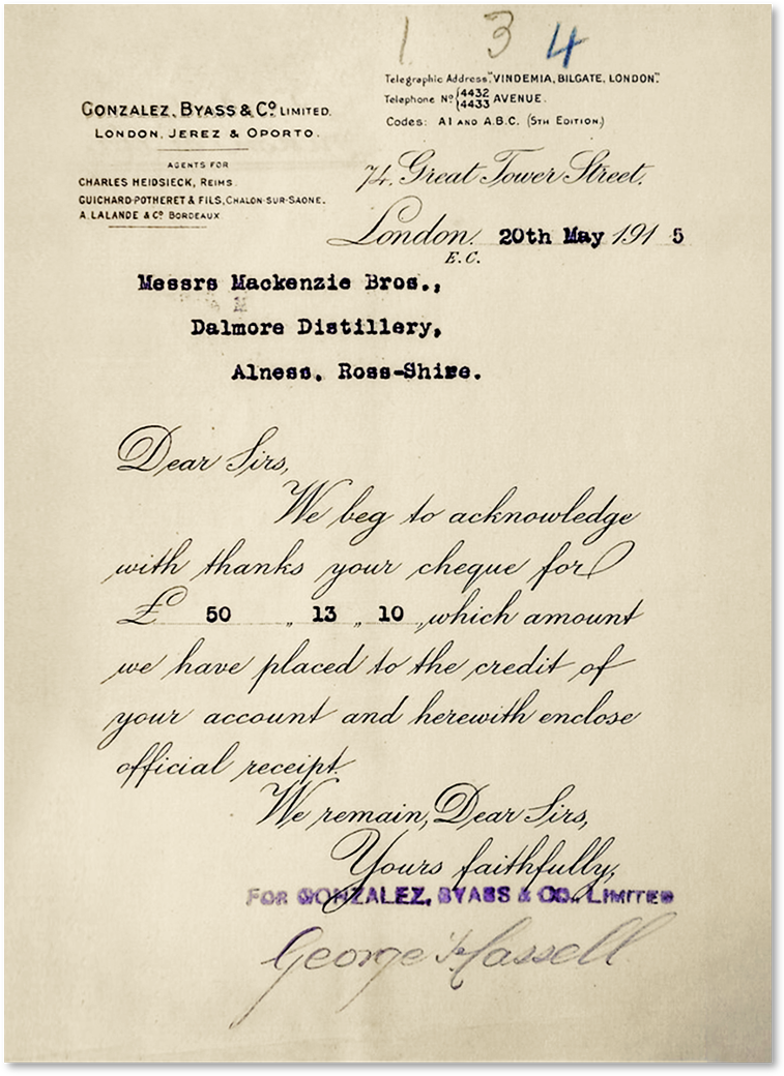 1 3 4
Telegraphic Address, "VINDEMIA, BILGATE, LONDON".
Telephone Nº {4432 4433 AVENUE.
Codes: A1 AND A.B.C. (5TH EDITION.)
GONZALEZ, BYASS & Cº LIMITED.
LONDON, JEREZ & OPORTO.
AGENTS FOR
CHARLES HEIDSIECK, REIMS.
GUICHARD-POTHERET & FILS, CHALON-SUR-SAONE.
A. LALANDE & Cº BORDEAUX.
74, Great Tower Street,
London, 20th May 191 5
E.C.
Messrs Mackenzie Bros.,
Dalmore Distillery,
Alness, Ross-Shire.
Dear Sirs,
We beg to acknowledge
with thanks your cheque for
£ 50 " 13 " 10 , which amount
we have placed to the credit of
your account and herewith enclose
official receipt.
We remain, Dear Sirs,
Yours faithfully,
FOR GONZALEZ, BYASS & CO., LIMITED
George Hassell